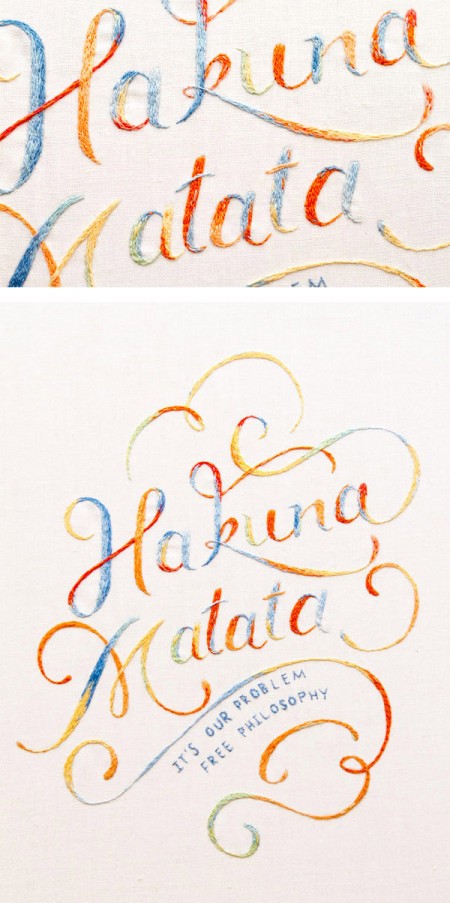 Hakuna
Matata
EM
Hakuna
Matata
IT'S OUR PROBLEM
FREE PHILOSOPHY